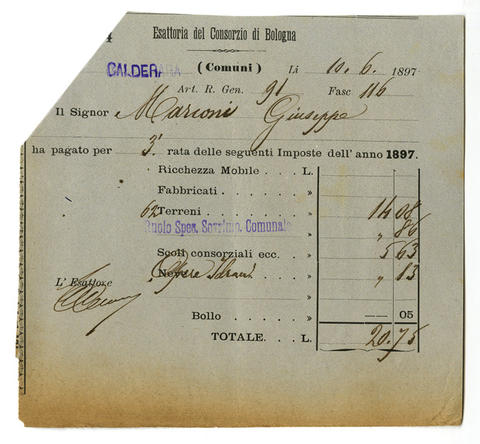 4 Esattoria del Consorzio di Bologna
CALDERARA (Comuni) Li 10. 6. 1897
Art. R. Gen. 91 Fasc 116
Il Signor Marconi Giuseppe
ha pagato per 3ª rata delle seguenti Imposte dell'anno 1897.
Ricchezza Mobile . . . L.
Fabbricati . . . . . . »
62 Terreni . . . . . . » 14 08
Ruolo Spec. Sovrimp. Comunale » „ 86
Scoli consorziali ecc. . » 5 63
L'Esattore Nevere Opere Idrau » „ 13
»
Bollo . . . . » —— 05
TOTALE. . . . L. 20.75